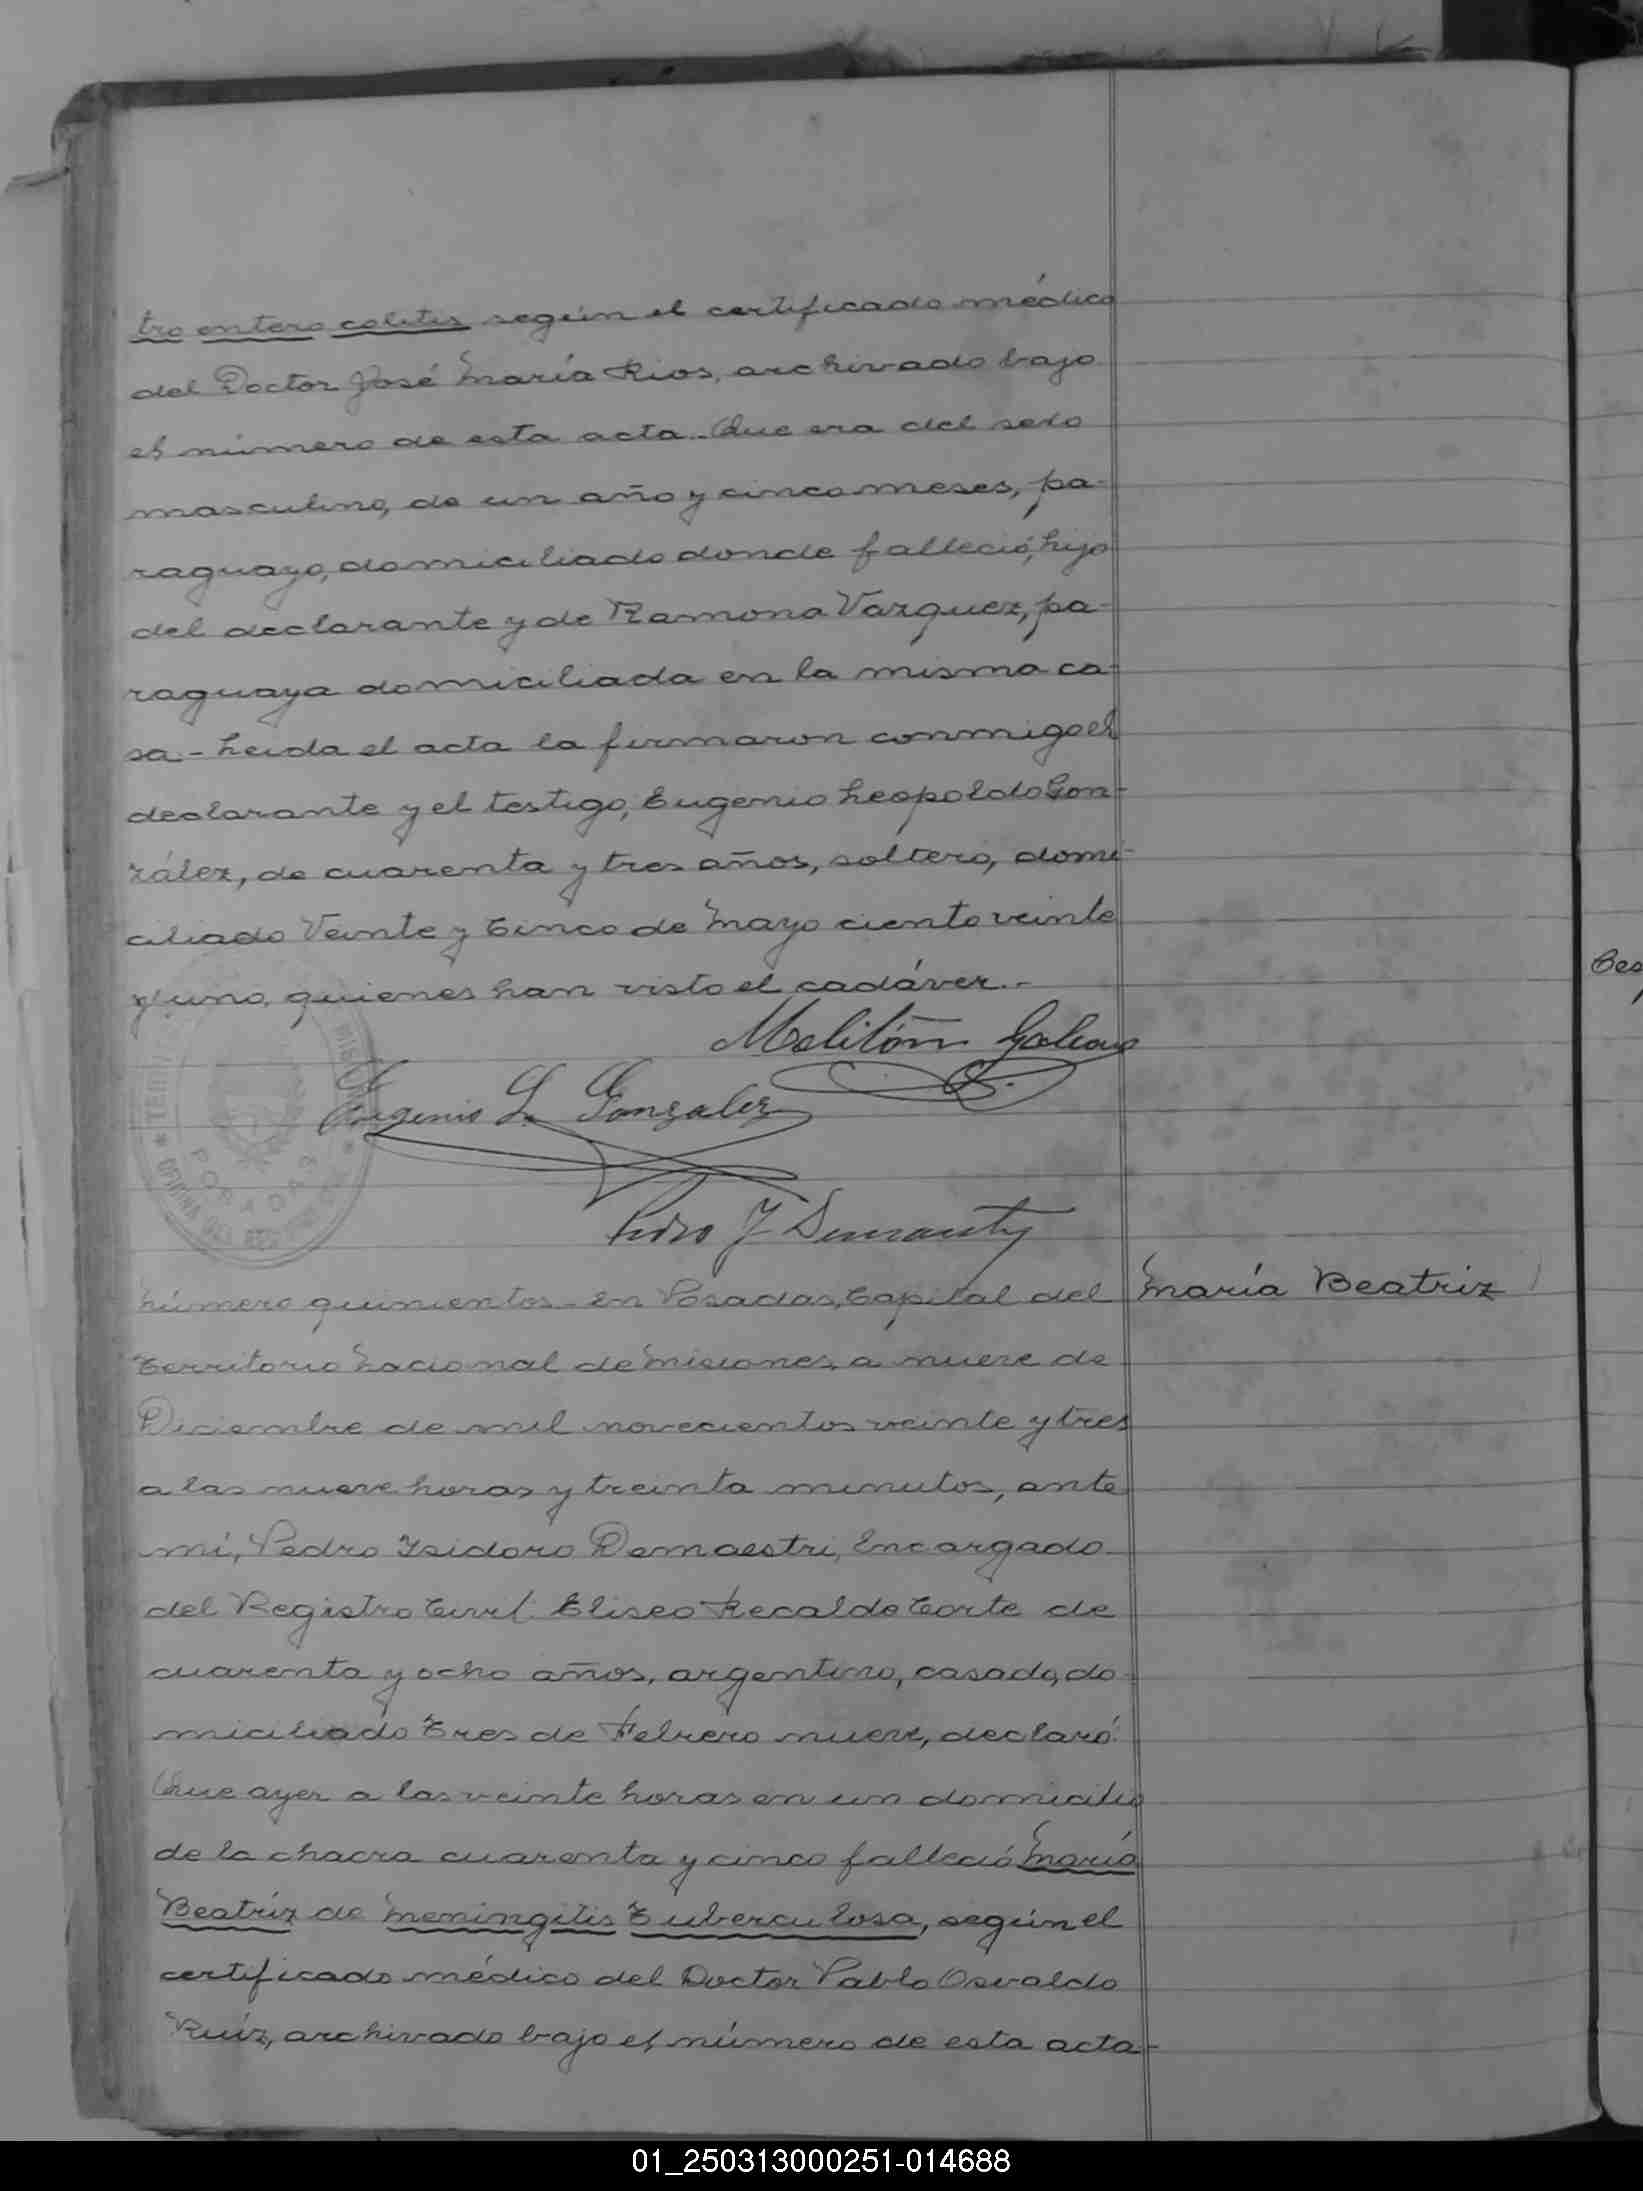 tro entero colitis según el certificado médico
del Doctor José María Rios, archivado bajo
el número de esta acta.- Que era del sexo
masculino, de un año y cinco meses, pa-
raguayo, domiciliado donde falleció, hijo
del declarante y de Ramona Vazquez, pa-
raguaya domiciliada en la misma ca-
sa.- Leida el acta la firmaron conmigo el
declarante y el testigo, Eugenio Leopoldo Gon-
zález, de cuarenta y tres años, soltero, domi-
ciliado Veinte y Cinco de Mayo ciento veinte
y uno, quienes han visto el cadáver.-
Melitón
Eugenio L. Gonzalez
POSADAS
Pedro I
Número quinientos - En Posadas, Capital del
María Beatriz
Territorio Nacional de Misiones, a nueve de
Diciembre de mil novecientos veinte y tres
a las nueve horas y treinta minutos, ante
mí, Pedro Isidoro Demaestri, Encargado
del Registro Civil. Eliseo Recaldo Corte de
cuarenta y ocho años, argentino, casado, do-
miciliado Tres de Febrero nueve, declaró:
Que ayer a las veinte horas en un domicilio
de la chacra cuarenta y cinco falleció María
Beatríz de Meningitis Tuberculosa, según el
certificado médico del Doctor Pablo Osvaldo
Ruíz, archivado bajo el número de esta acta-
01_250313000251-014688